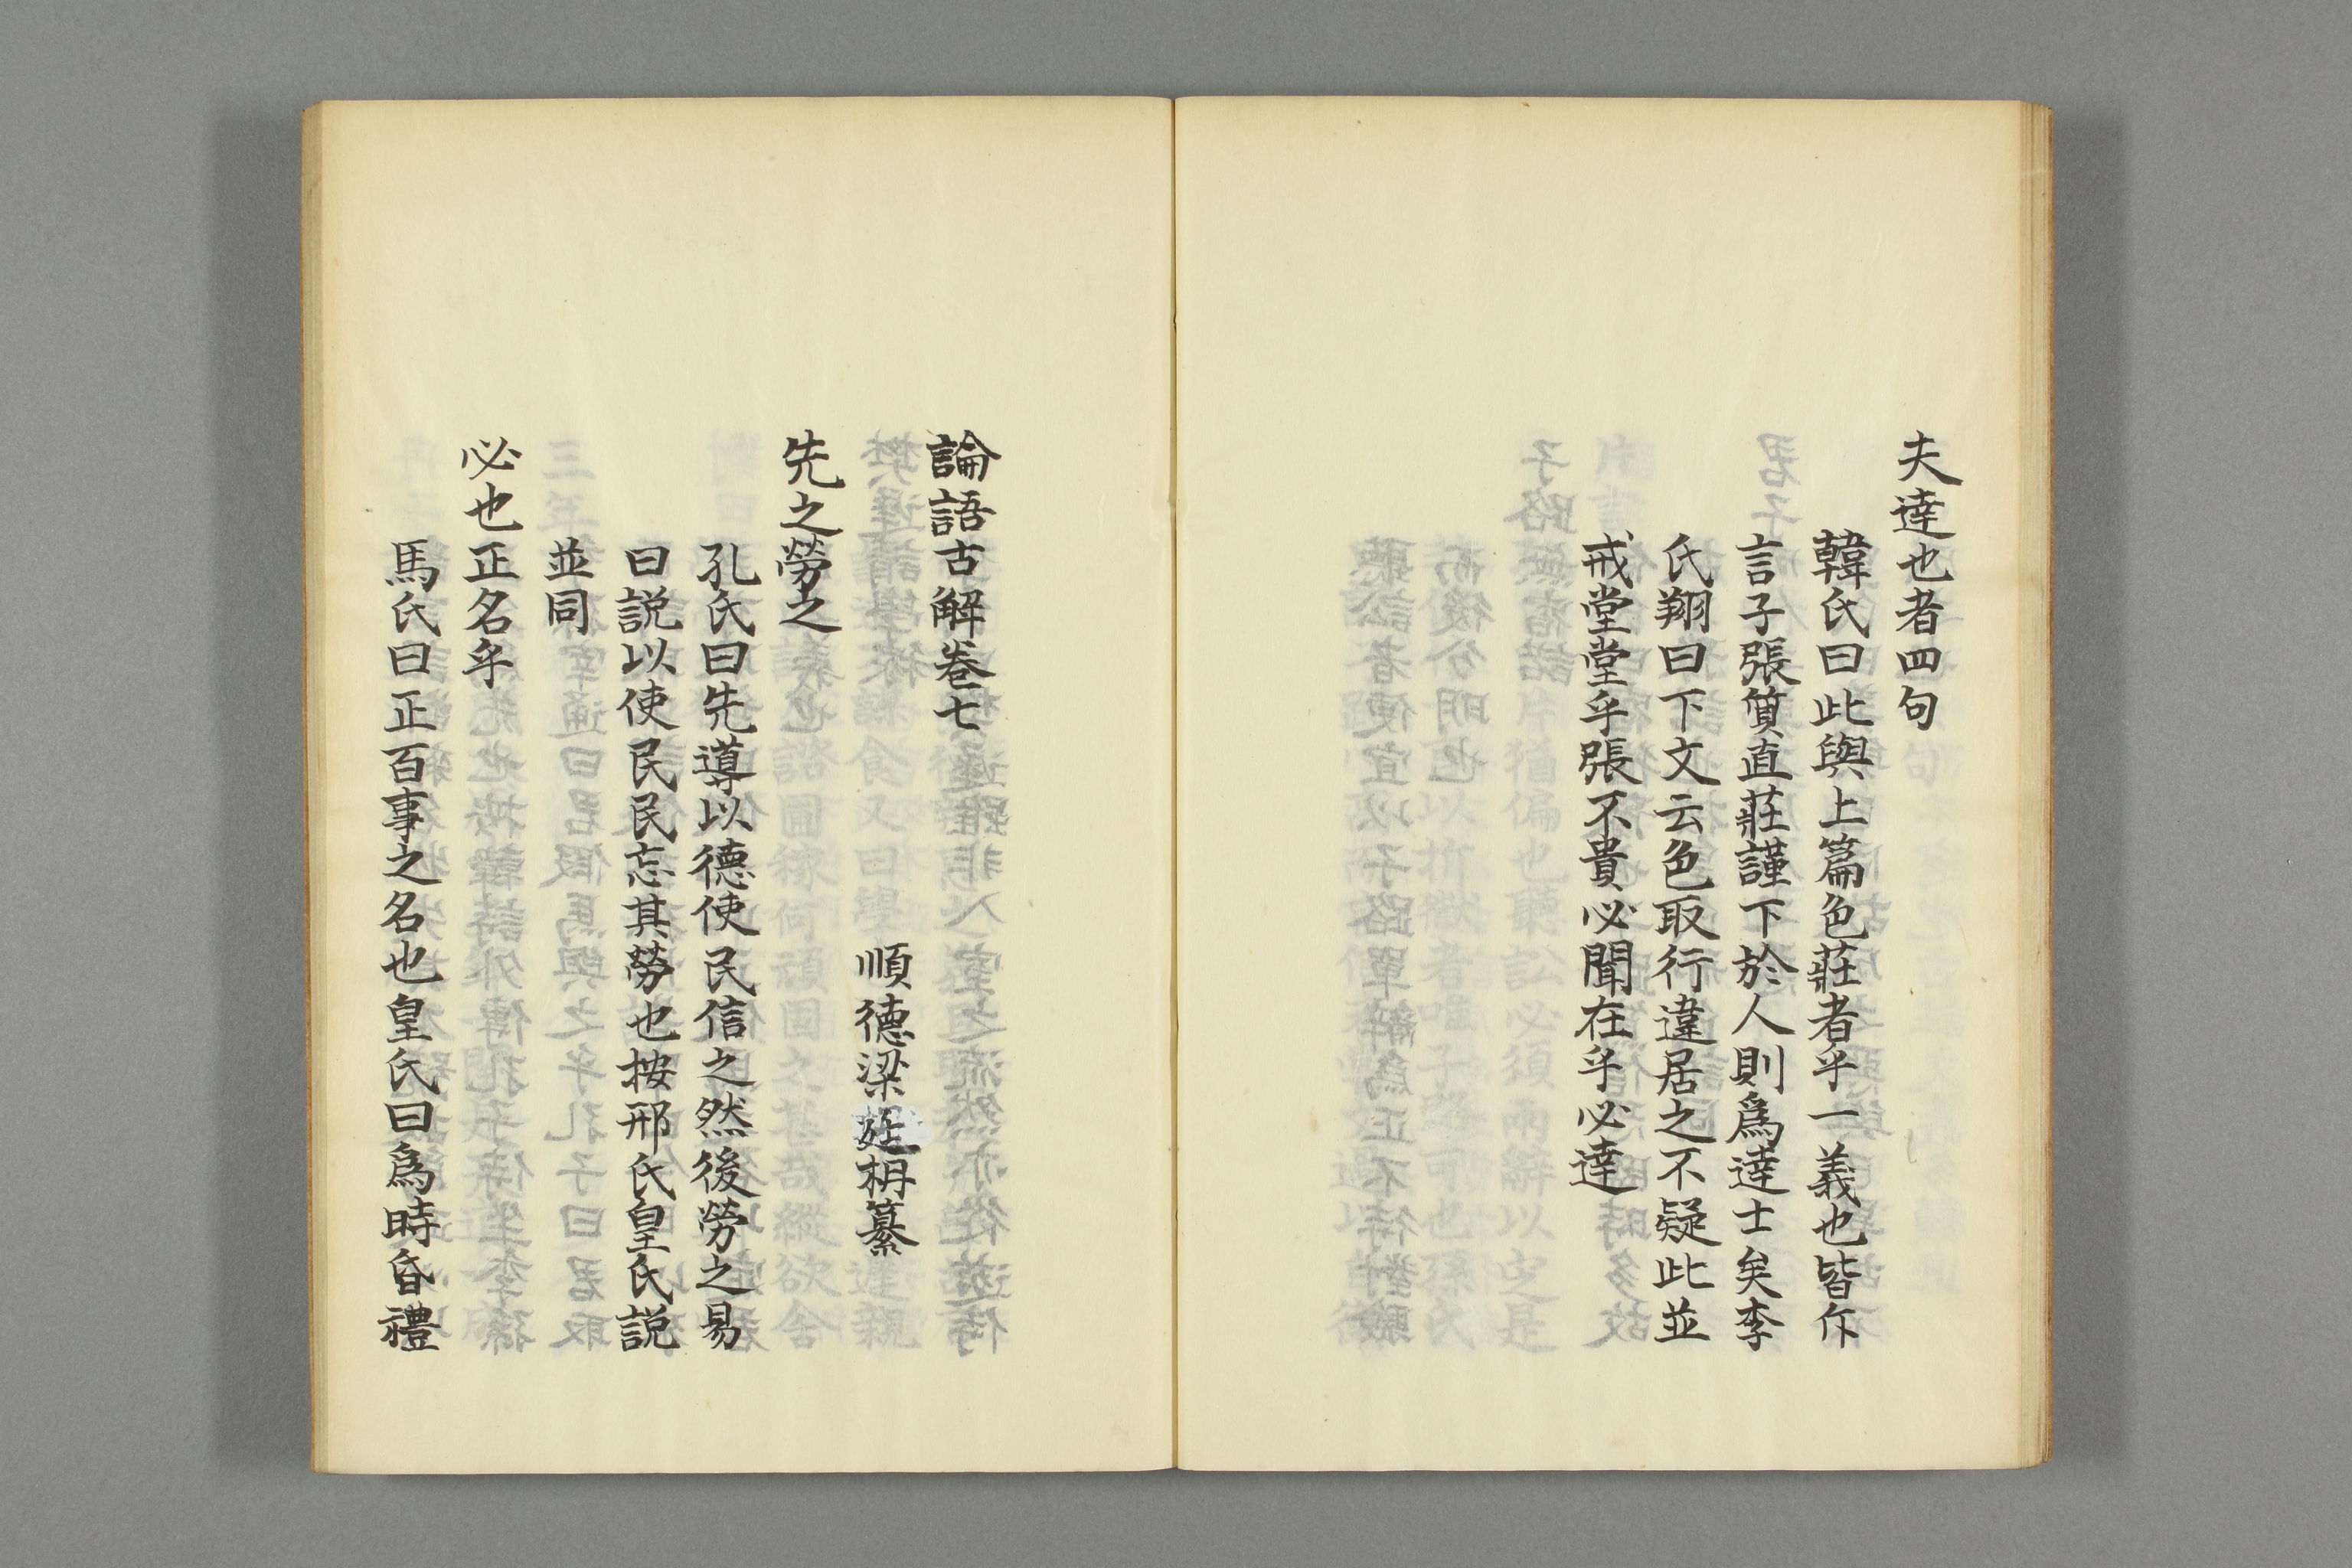 夫達也者四句
韓氏曰此與上篇色莊者乎一義也皆斥
言子張質直莊謹下於人則爲達士矣李
氏翔曰下文云色取行違居之不疑此並
戒堂堂乎張不貴必聞在乎必達
論語古解卷七
順德梁廷枏纂
先之勞之
孔氏曰先導以德使民信之然後勞之易
曰説以使民民忘其勞也按邢氏皇氏説
並同
必也正名乎
馬氏曰正百事之名也皇氏曰爲時昏禮